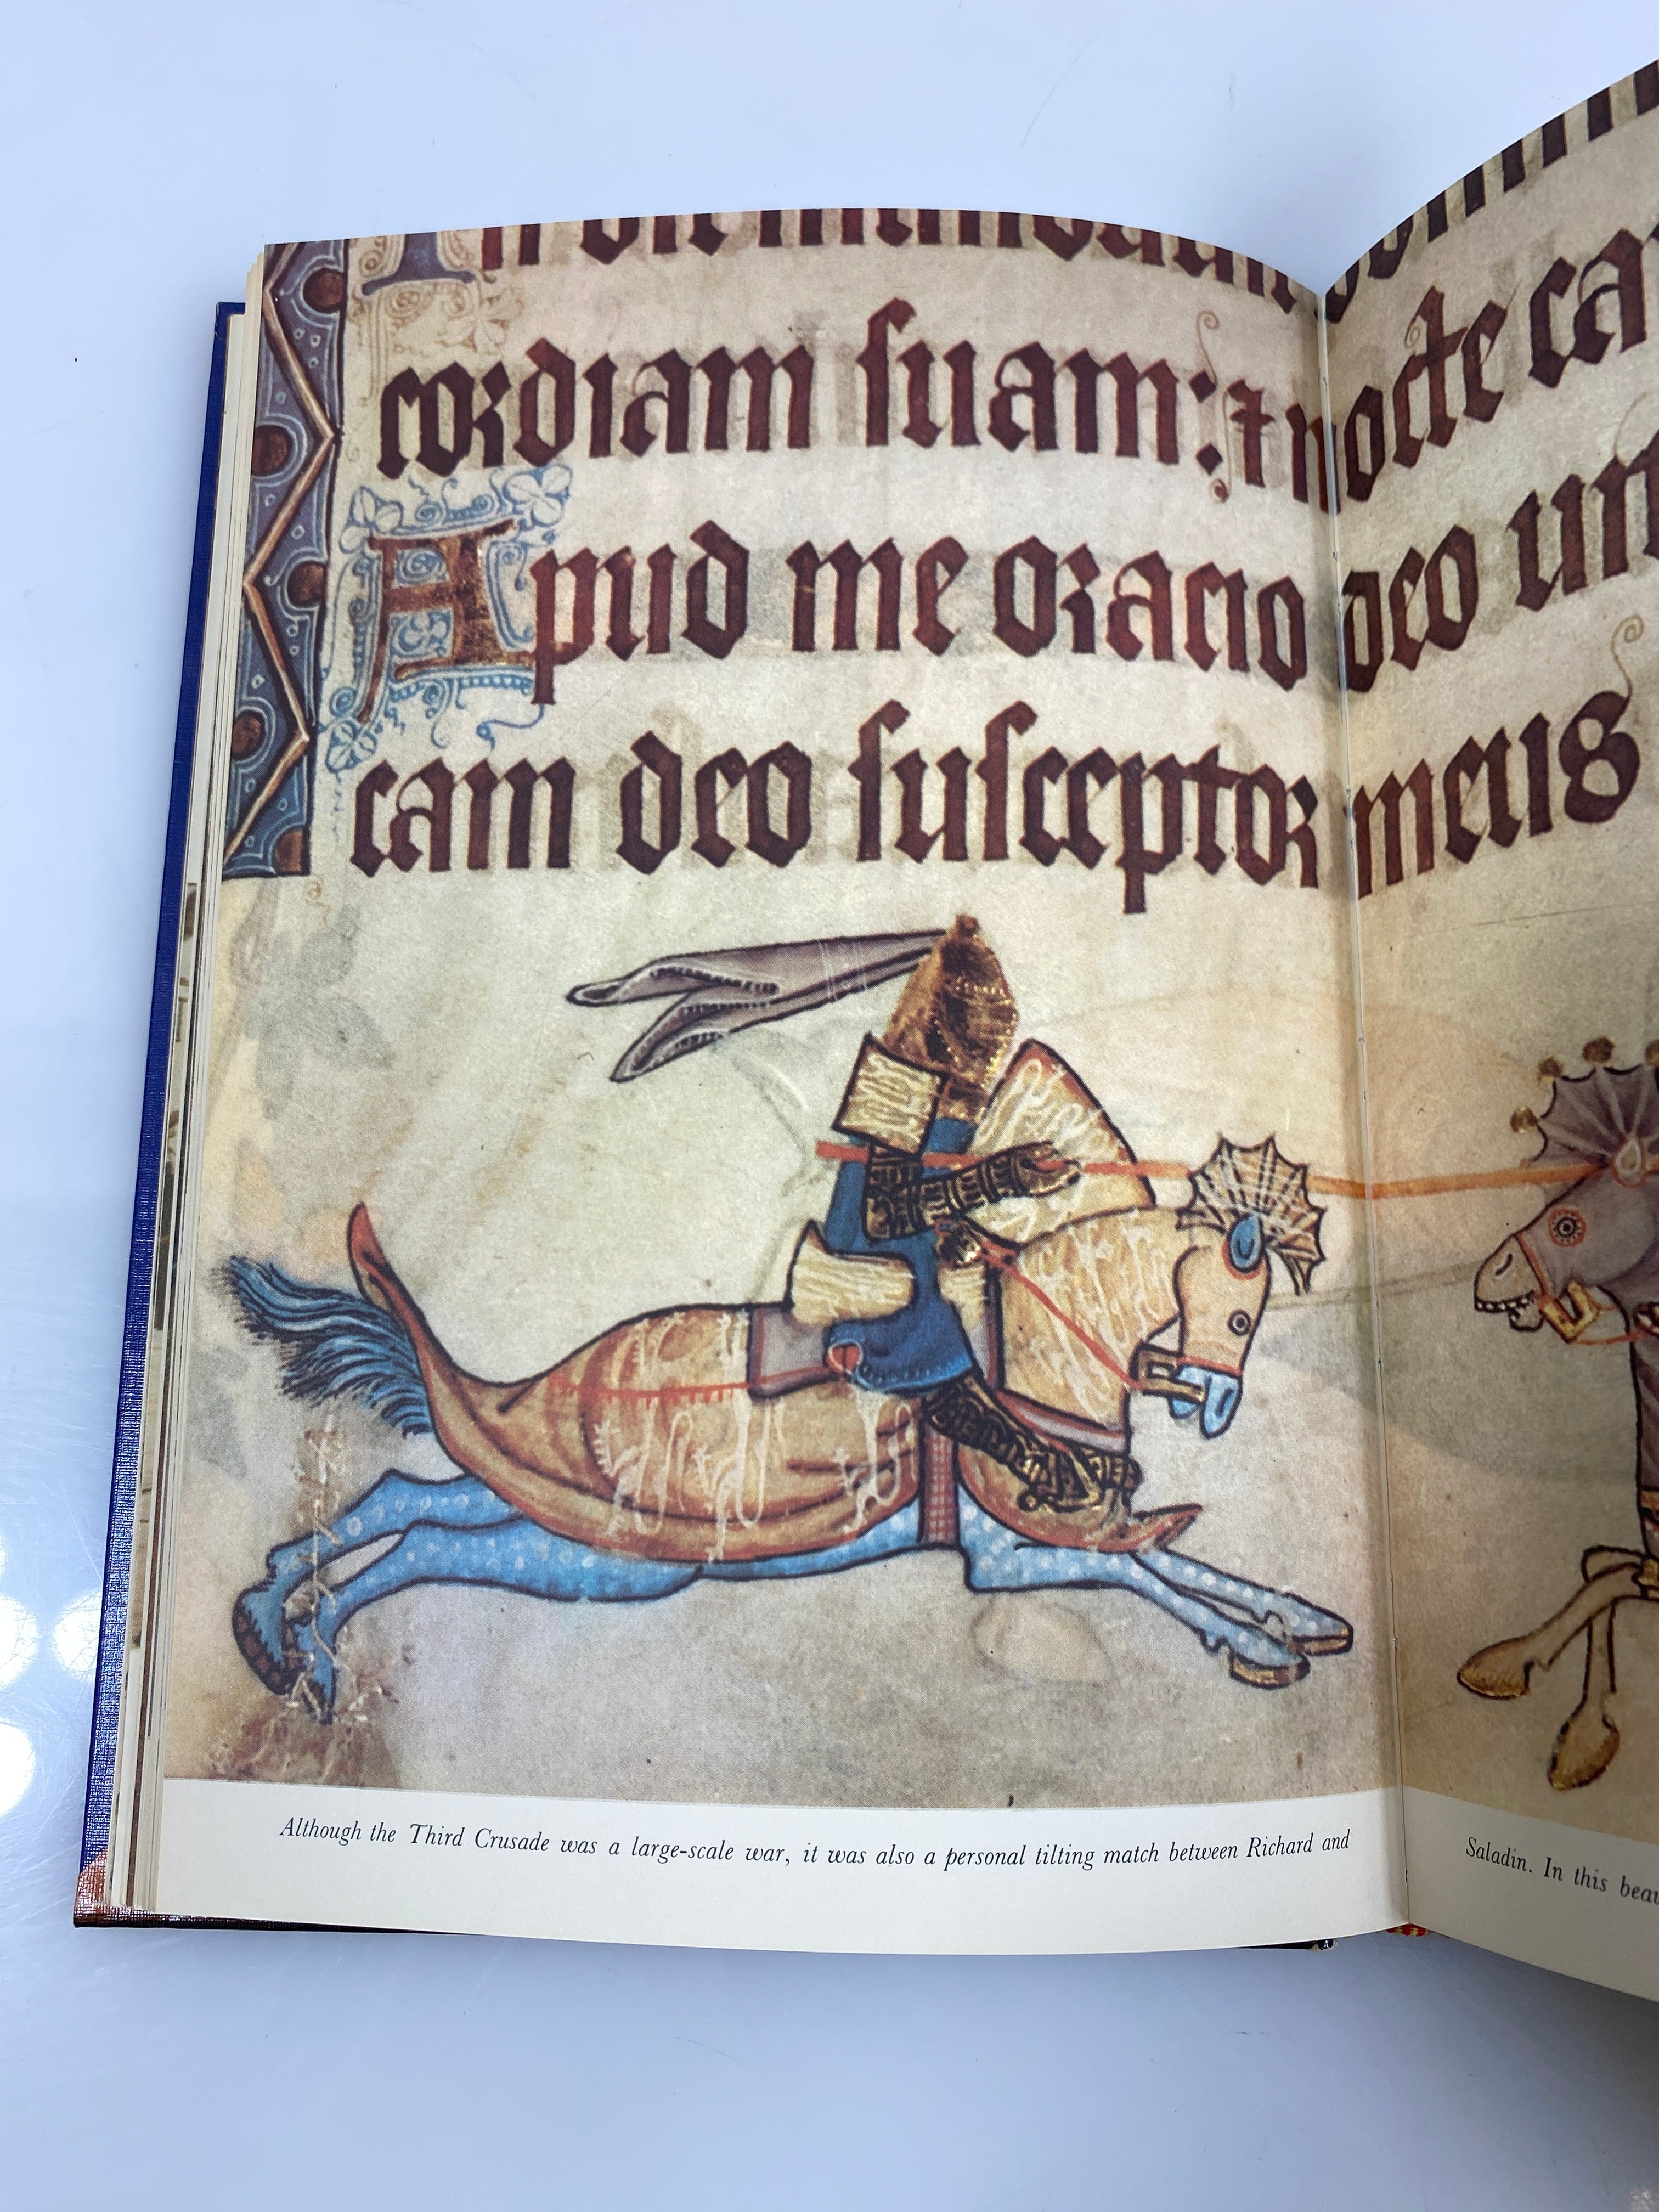 In die mandauit
cordiam suam: ⁊ nocte ca
Apud me oracio deo uit
cam deo susceptor meus
Although the Third Crusade was a large-scale war, it was also a personal tilting match between Richard and
Saladin. In this beau